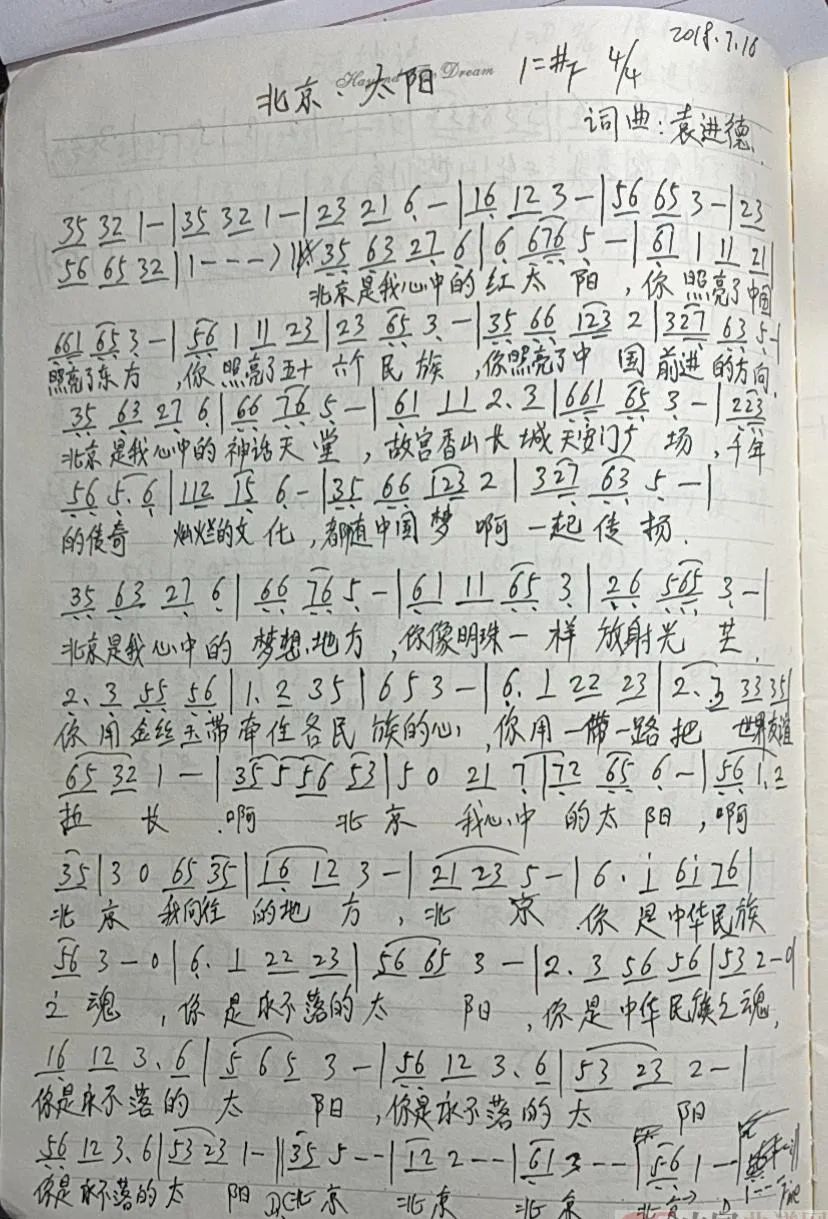 2018.7.16
北京·太阳 Ha Dream 1=#F 4/4
词曲：袁进德
35 32 1-|35 32 1-|23 21 6-|16 12 3-|56 65 3-|23
56 65 32|1---)‖35 63 27 6|6 676 5-|61 1 11 21|
北京是我心中的红太阳，你照亮了中国
661 65 3-|56 1 11 23|23 65 3-|35 66 123 2|327 63 5-|
照亮了东方，你照亮了五十六个民族，你照亮了中国前进的方向。
35 63 27 6|66 76 5-|61 11 2.3|661 65 3-|223
北京是我心中的神话天堂，故宫香山长城天安门广场，千年
56 5.6|112 15 6-|35 66 123 2|327 63 5-|
的传奇 灿烂的文化，都随中国梦啊一起传扬.
35 63 27 6|66 76 5-|61 11 65 3|26 565 3-|
北京是我心中的梦想地方，你像明珠一样放射光芒.
2.3 55 56|1.2 35|6 5 3-|6.1 22 23|2.3 33 35|
你用金丝玉带牵住各民族的心，你用一带一路把世界
65 32 1-|35 5 56 53|5 0 21 7|72 65 6-|56 1.2
拉长.啊 北京 我心中的太阳，啊
35|3 0 65 35|16 12 3-|21 23 5-|6.i 6i 76|
北京 我向往的地方，北京.你是中华民族
56 3-0|6.1 22 23|56 65 3-|2.3 56 56|53 2-0|
之魂，你是永不落的太阳，你是中华民族之魂，
16 12 3.6|5 6 5 3-|56 12 3.6|53 23 2-|
你是永不落的太阳，你是永不落的太阳
56 12 3.6|53 23 1-‖35 5--|12 2--|61 3--|56 1-|
你是永不落的太阳 D.C北京 北京 北京 北京 Fine